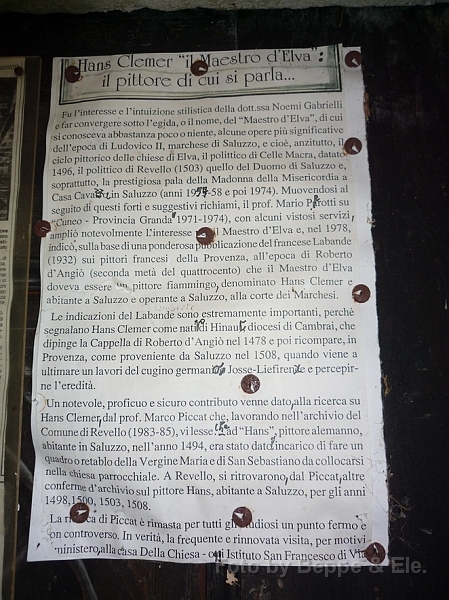 Hans Clemer "il Maestro d'Elva":
il pittore di cui si parla...
Fu l'interesse e l'intuizione stilistica della dott.ssa Noemi Gabrielli
e far convergere sotto l'egida, o il nome, del "Maestro d'Elva", di cui
si conosceva abbastanza poco o niente, alcune opere più significative
dell'epoca di Ludovico II, marchese di Saluzzo, e cioè, anzitutto, il
ciclo pittorico delle chiese di Elva, il polittico di Celle Macra, datato
1496, il polittico di Revello (1503) quello del Duomo di Saluzzo e,
soprattutto, la prestigiosa pala della Madonna della Misericordia a
Casa in Saluzzo (anni -58 e poi 1974). Muovendosi al
seguito di questi forti e suggestivi richiami, il prof. Mario su
"Cuneo - Provincia Granda" 1971-1974), con alcuni vistosi servizi,
ampliò notevolmente l'interesse il Maestro d'Elva e, nel 1978,
indicò, sulla base di una ponderosa pubblicazione del francese Labande
(1932) sui pittori francesi della Provenza, all'epoca di Roberto
d'Angiò (seconda metà del quattrocento) che il Maestro d'Elva
doveva essere un pittore fiammingo, denominato Hans Clemer e
abitante a Saluzzo e operante a Saluzzo, alla corte dei Marchesi.
Le indicazioni del Labande sono estremamente importanti, perchè
segnalano Hans Clemer come di Hinaut, diocesi di Cambrai, che
dipinge la Cappella di Roberto d'Angiò nel 1478 e poi ricompare, in
Provenza, come proveniente da Saluzzo nel 1508, quando viene a
ultimare un lavori del cugino Josse-Liefirenze e percepir-
ne l'eredità.
Un notevole, proficuo e sicuro contributo venne dato, alla ricerca su
Hans Clemer, dal prof. Marco Piccat che, lavorando nell'archivio del
Comune di Revello (1983-85), vi lesse ad "Hans", pittore alemanno,
abitante in Saluzzo, nell'anno 1494, era stato dato incarico di fare un
quadro o retablo della Vergine Maria e di San Sebastiano da collocarsi
nella chiesa parrocchiale. A Revello, si ritrovarono, dal Piccat, altre
conferme d'archivio sul pittore Hans, abitante a Saluzzo, per gli anni
1498, 1500, 1503, 1508.
La ricerca di Piccat è rimasta per tutti gli studiosi un punto fermo e
non controverso. In verità, la frequente e rinnovata visita, per motivi
ministero, alla casa Della Chiesa - Istituto San Francesco di
Foto by Beppe & Ele.